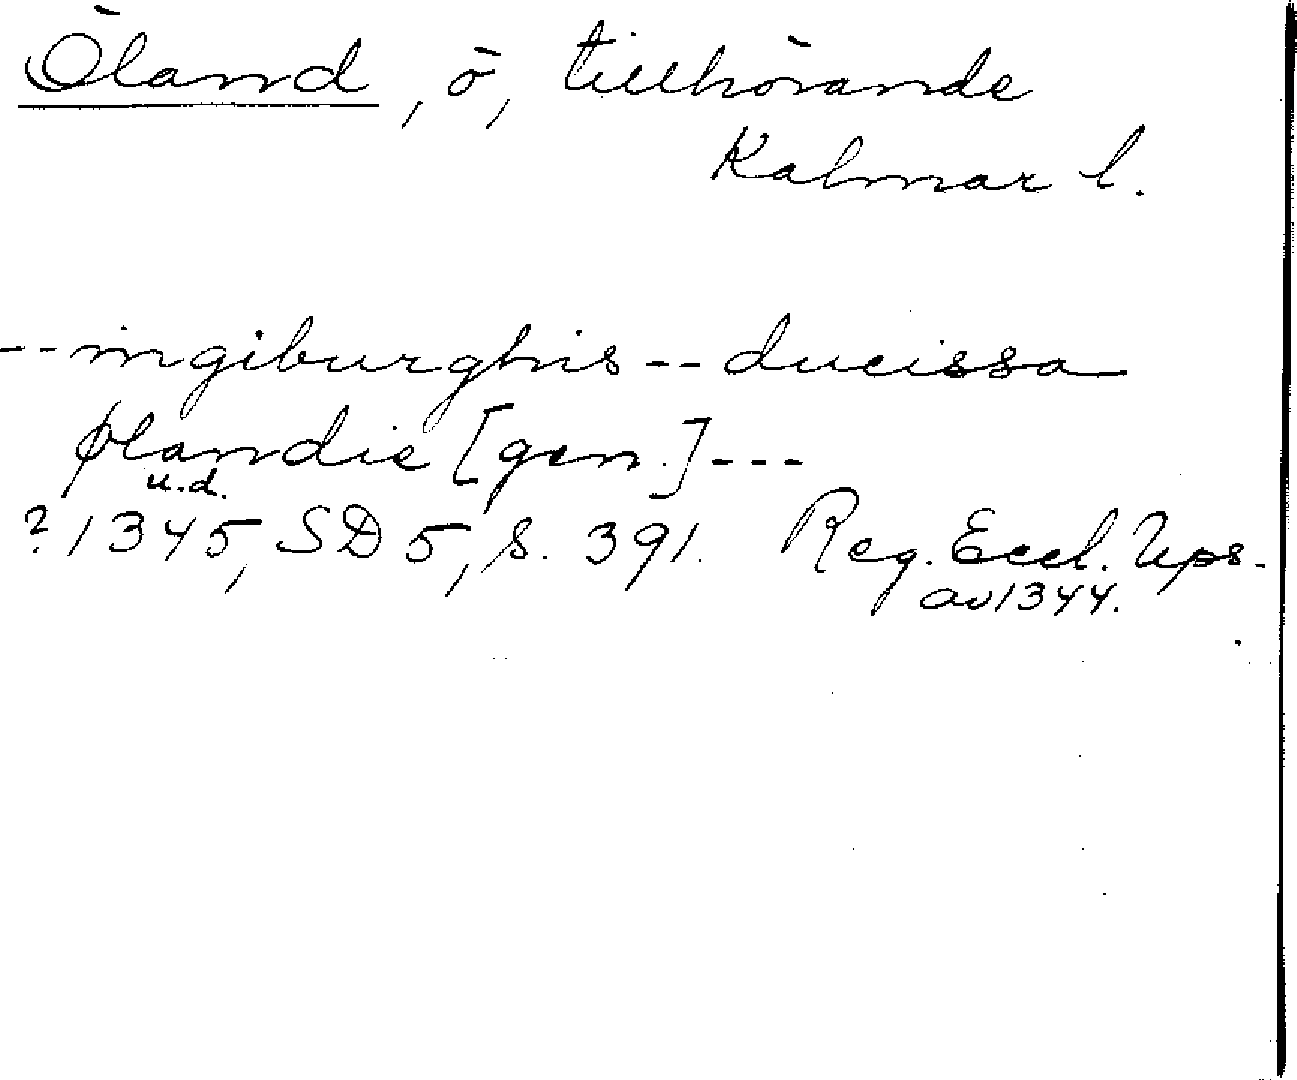 Öland, ö, tillhörande
Kalmar l.
-- ingiburghis -- ducissa
ølandie [gen.] ---
u.d.
? 1345, SD 5, s. 391. Reg. Eccl. Ups.
av 1344.